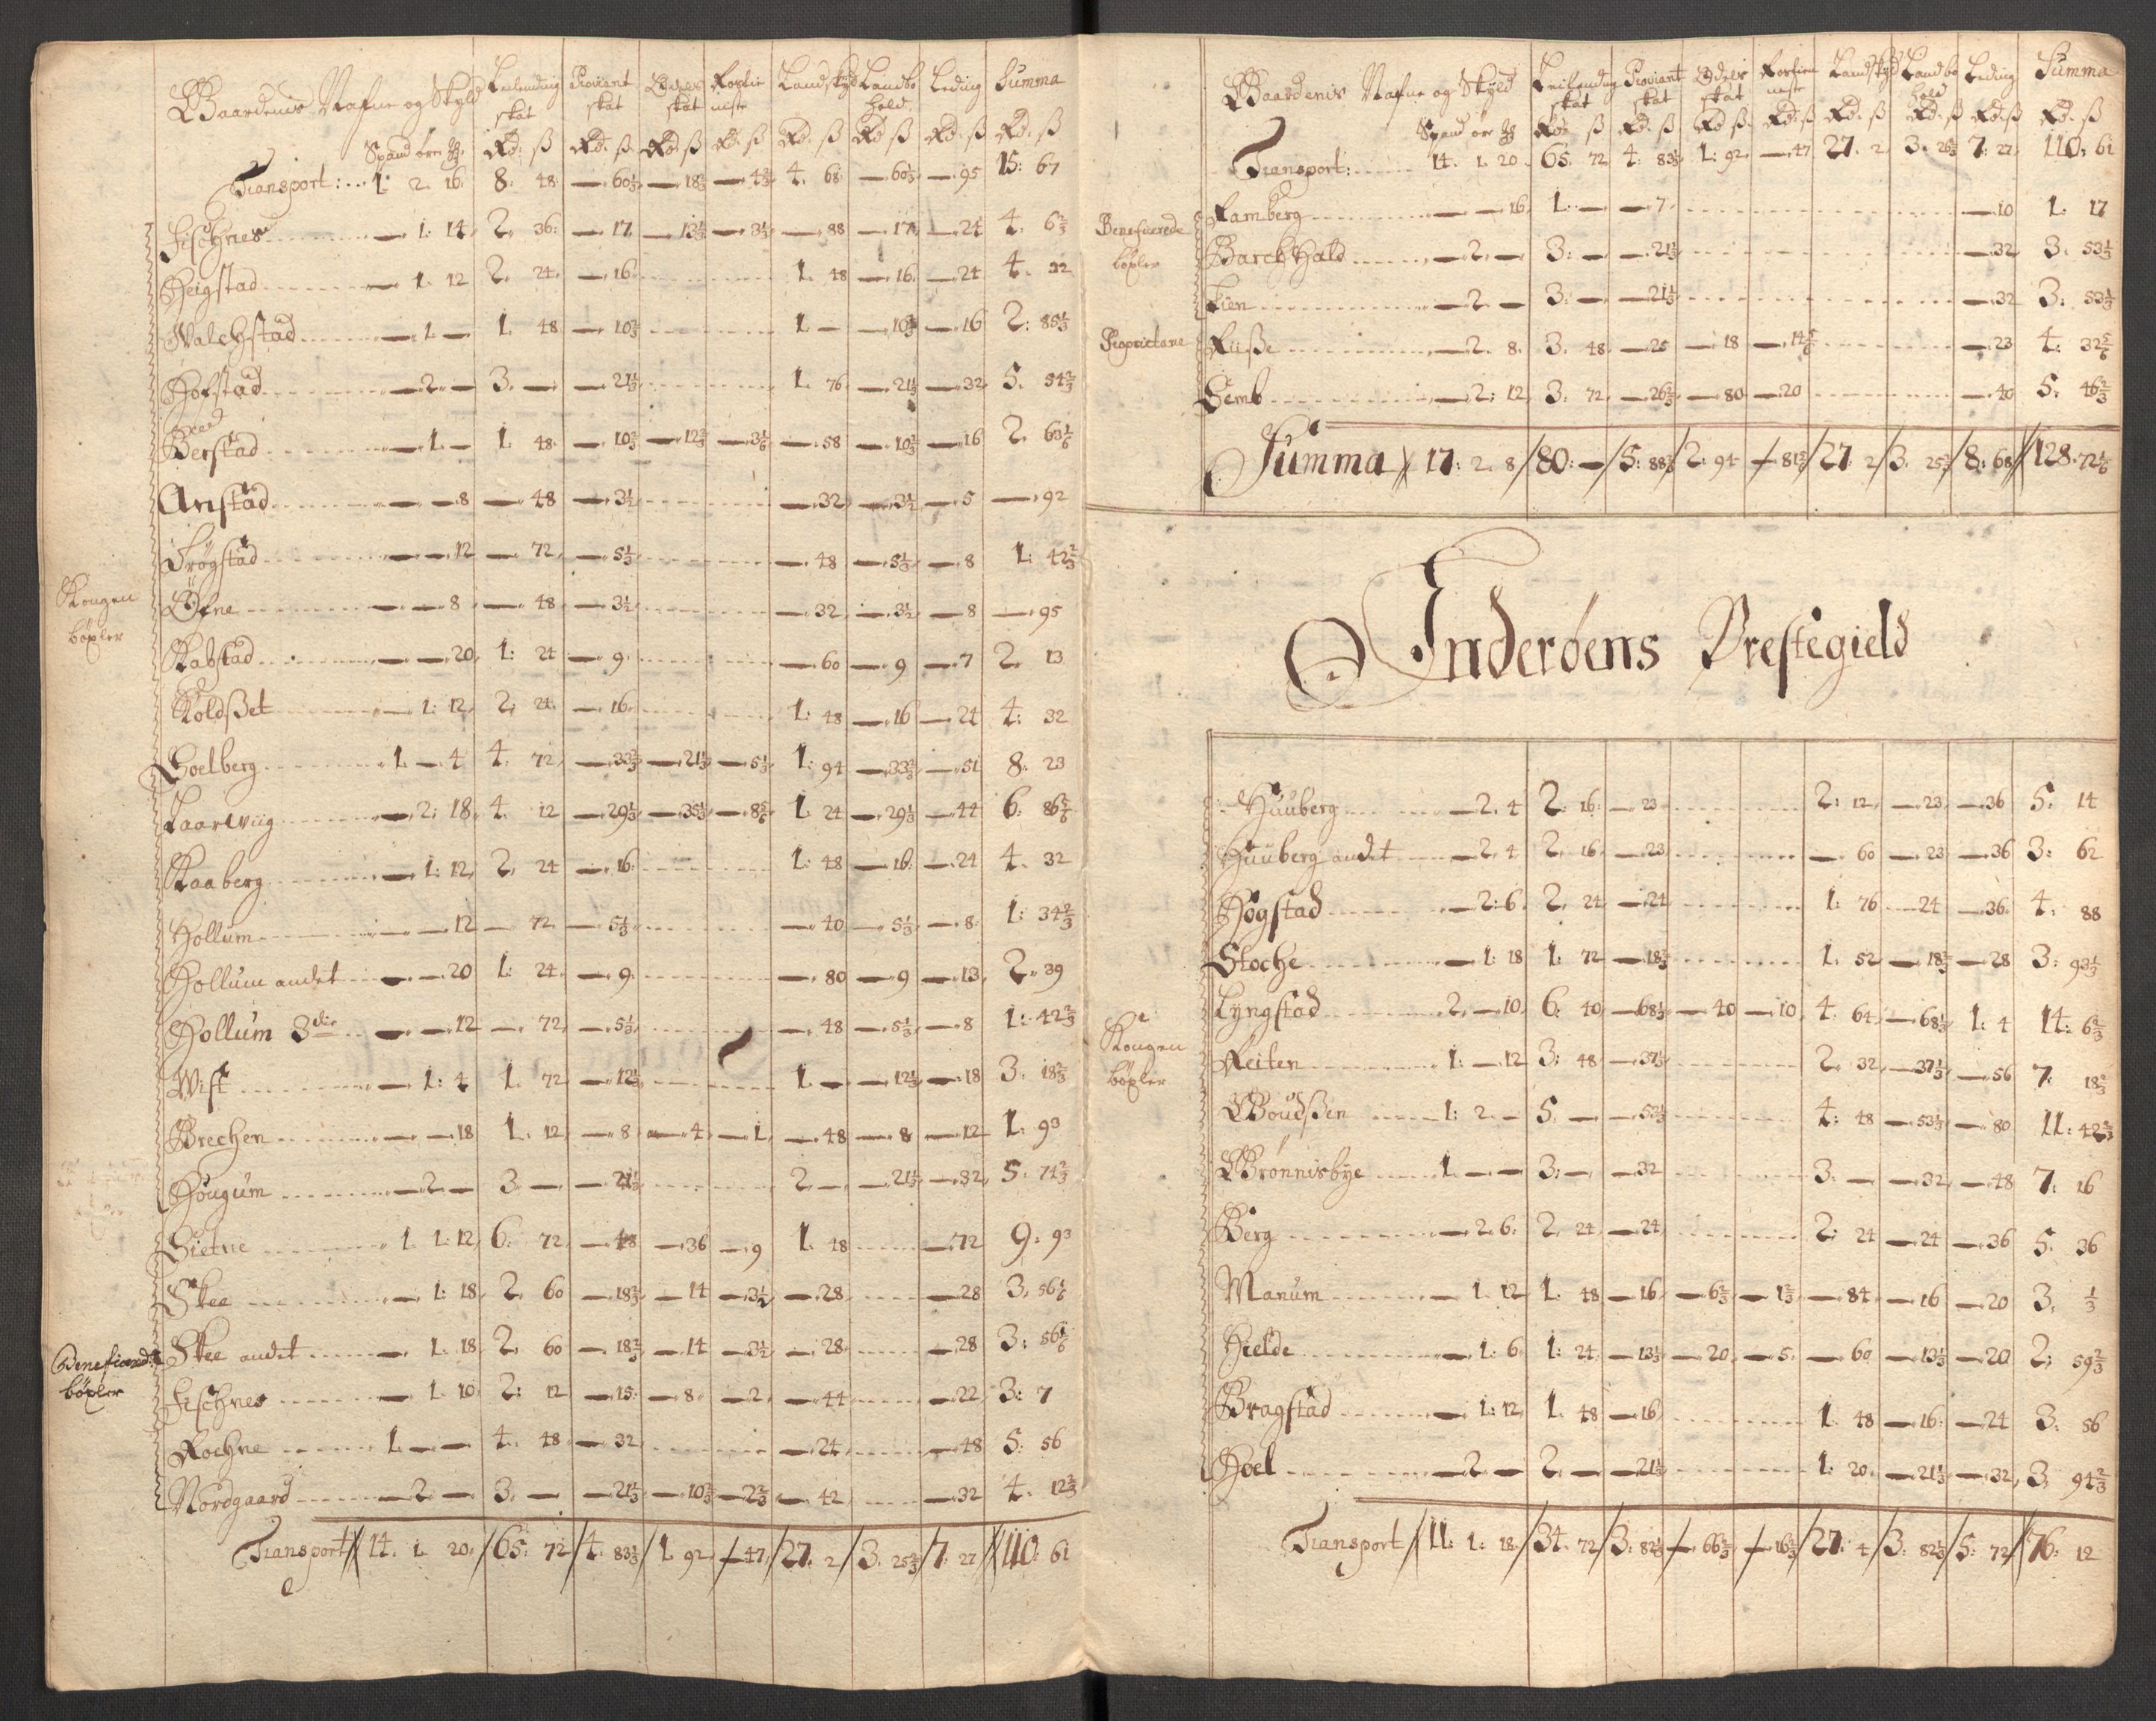 Gaardenis Nafne og Skyld Leilending skat Proviant skat Odels skat Rostieniste Landskyld Landbo hold Leding Summa
Spand øre mrk Rd. ß Rd. ß Rd ß Rd. ß Rd. ß Rd ß Rd. ß Rd. ß
Transport: 1. 2. 16. 8. 48 — 60⅓ — 18⅔ — 4⅔ 4. 68 — 60⅓ — 95 15. 67
Fischnes — 1. 14 2. 36. — 17 — 13⅓ — 3⅓ — 88 — 17 — 24 4. 6⅔
Heigstad — 1. 12 2. 24. — 16 1. 48 — 16. — 24 4. 32
Walchstad — 1 — 1. 48 — 10⅔ 1. — — 10⅔ — 16 2. 85⅓
Hofstad — 2 — 3. — — 21⅓ 1. 76 — 21⅓ — 32 5. 54⅔
Berstad — 1 — 1. 48. — 10⅔ — 12⅔ — 3⅙ — 58 — 10⅔ — 16 2. 63⅙
Anstad — — 8 — 48 — 3½ — 32 — 3½ — 5 — 92
Frøgstad — — 12 — 72 — 5⅓ — 48 — 5⅓ — 8 1. 42⅔
Øfne — — 8 — 48 — 3½ — 32 — 3½ — 8 — 95
Kongen
bøxler
Kabstad — — 20 1: 24 — 9 — 60 — 9 — 7 2. 13
Koldsßet — 1: 12 2. 24. — 16 1. 48 — 16 — 24 4: 32
Soelberg 1. — 4 4. 72 — 33⅔ — 21⅓ — 5⅓ 1. 94 — 33⅔ — 51 8. 23
Laarwiig — 2: 18 4. 12 — 29⅓ — 35⅓ — 8⅚ 1. 24 — 29⅓ — 44 6. 86⅚
Kaaberg — 1: 12 2. 24 — 16. 1: 48 — 16 — 24 4. 32
Hollum — — 12 — 72 — 5⅓ — 40 — 5⅓ — 8. 1: 34⅔
Hollum andet — — 20 1: 24. — 9. — 80 — 9 — 13 2. 39
Hollum 3die — — 12 — 72 — 5⅓ — 48 — 5⅓ — 8 1: 42⅔
Wist — 1: 4 1. 72 — 12⅓ 1. — — 12⅓ — 18 3. 18⅔
Brechen — — 18 1: 12 — 8 — 4 — 1 — 48 — 8 — 12 1: 93
Hougum — 2 — 3. — — 21⅓ 2. — — 21⅓ — 32 5. 74⅔
Sietne 1. 1: 12 6. 72 — 48 — 36 — 9 1. 48 — 72 9. 93
Skee — 1: 18 2. 60 — 18⅔ — 14 — 3½ — 28 — 28 3. 56⅙
Skee andet — 1. 18 2. 60 — 18⅔ — 14 — 3½ — 28 — 28 3: 56⅙
Beneficered:
bøxler
Fischnes — 1. 10 2: 12 — 15. — 8. — 2. — 44 — 22 3: 7
Rochne 1. — — 4. 48 — 32 — 24 — 48 5: 56
Nordgaard — 2 — 3. — — 21⅓ — 10⅔ — 2⅔ — 42 — 32 4. 12⅔
Transport 14. 1. 20. 65. 72 4. 83⅓ 1. 92 — 47 27. 2 3. 25⅔ 7. 27 110. 61
Gaardenis Nafne og Skyld Leilending skat Proviant skat Odels skat Rostieniste Landskyld Landbo hold Leding Summa
Spand øre mrk Rd. ß Rd. ß Rd ß Rd. ß Rd. ß Rd. ß Rd. ß Rd. ß
Transport: 14. 1. 20. 65. 72 4: 83⅓ 1: 92 — 47 27. 2 3. 26⅔ 7: 27 110. 61
Ramberg — — 16 1. — — 7 — 10 1. 17
Beneficerede
bøxler
Barchhald — 2 — 3: — — 21⅓ — 32 3. 53⅓
Lien — 2 — 3. — — 21⅓ — 32 3: 53⅓
Proprietarie
Rüße — 2. 8. 3. 48 — 25 — 18 — 14⅚ — 23 4. 32⅚
Semb — 2: 12 3. 72 — 26⅔ — 80 — 20 — 40 5. 46⅔
Summa 17: 2. 8 80: — 5: 88⅓ 2: 94 — 81⅚ 27. 2 3. 25⅔ 8: 68 128. 72⅙
Inderöens Prestegield
Huuberg — 2. 4 2: 16: — 23 2: 12 — 23 — 36 5. 14
Huuberg andet — 2. 4 2. 16 — 23 — 60 — 23 — 36 3: 62
Høgstad — 2: 6. 2. 24 — 24 1. 76 — 24 — 36. 4. 88
Stoche — 1: 18 1: 72 — 18⅔ 1. 52 — 18⅔ — 28 3: 93⅓
Lyngstad 2. — 10 6: 40 — 68⅓ — 40 — 10 4. 64 — 68⅓ 1: 4 14: 6⅔
Kongen
bøxler
Reiten 1: — 12 3: 48 — 37⅓ 2. 32 — 37⅓ — 56 7. 18⅔
Goudßen 1: 2 — 5. — — 53⅓ 4: 48 — 53⅓ — 80 11: 42⅔
Grønnisbye 1. — — 3: — — 32 3. — — 32 — 48 7: 16
Berg — 2. 6. 2. 24 — 24 2: 24 — 24 — 36 5. 36
Manum — 1. 12 1. 48 — 16 — 6⅔ — 1⅔ — 84 — 16 — 20 3. ⅓
Hielde — 1: 6 1: 24 — 13⅓ — 20 — 5. — 60 — 13⅓ — 20 2; 59⅔
Bragstad — 1: 12 1. 48 — 16 1. 48 — 16 — 24 3. 56
Hoel — 2 — 2. — — 21⅓ 1: 20 — 21⅓ — 32 3. 94⅔
Transport 11: 1: 18 34. 72 3: 82⅓ — 66⅔ — 16⅔ 27. 4 3: 82⅓ 5: 72 76: 12